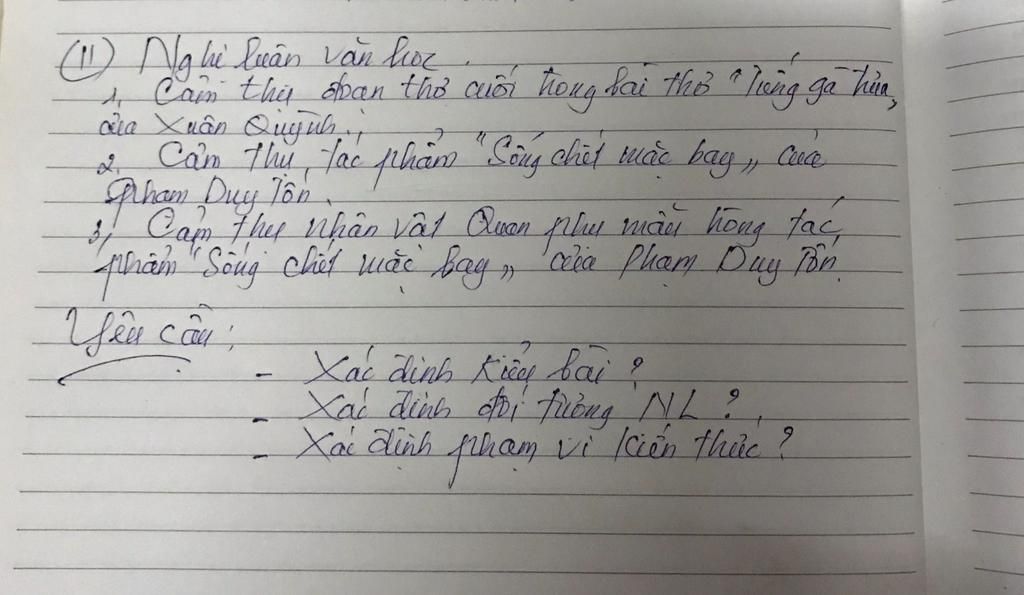 (II) Nghị luận văn học.
1, Cảm thụ đoạn thơ cuối trong bài thơ "Tiếng gà trưa"
của Xuân Quỳnh.
2, Cảm thụ tác phẩm "Sống chết mặc bay" của
Phạm Duy Tốn.
3, Cảm thụ nhân vật Quan phụ mẫu trong tác
phẩm "Sống chết mặc bay" của Phạm Duy Tốn
Yêu cầu:
- Xác định kiểu bài?
- Xác định đối tượng NL?
- Xác định phạm vi kiến thức?